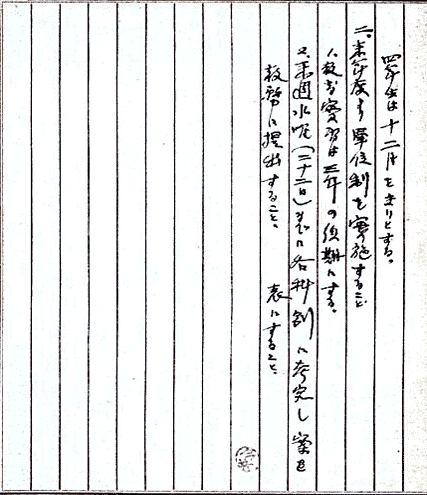 四年生は十二月をきりとする。
二、来年度より単位制を實施すること
1、教育實習は三年の後期にする。
2、来週水曜(二十二日)までに各科創に考究し案を
教務に提出すること。 表にすること、